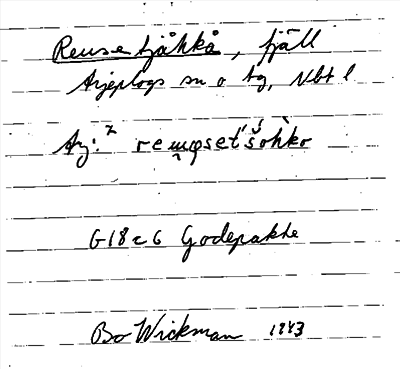 Reusetjåkkå, fjäll
Arjeplogs sn o tg, Nbt l
Arj:
G18c6 Godepakte
Bo Wickman 1943